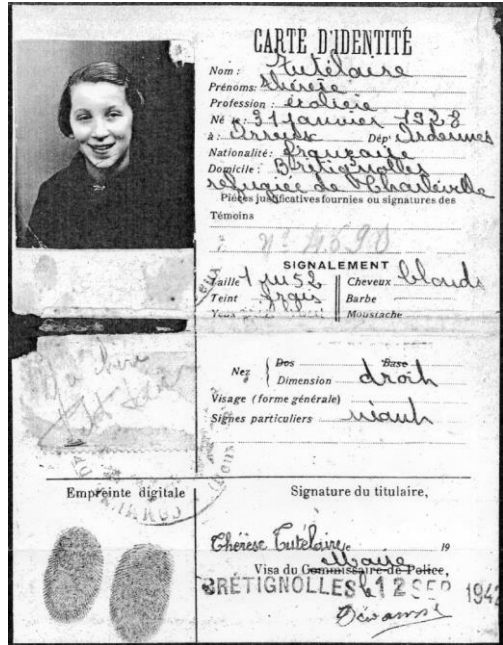 CARTE D'IDENTITÉ
Nom : Tutélaire
Prénoms: thérèse
Profession :
Né le : 31 janvier 1928
à : Arreux Dépt Ardennes
Nationalité: française
Domicile: Brétignolles
refugiée de Charleville
Pièces justificatives fournies ou signatures des
Témoins
n° 4690
SIGNALEMENT
Taille 1 m 52 Cheveux blonds
Teint Barbe
Yeux Moustache
Nez { Dos Base
Dimension droit
Visage (forme générale)
Signes particuliers
Empreinte digitale
Signature du titulaire,
Thérèse Tutélaire, le 19
Mairie
Visa du Commissaire de Police,
BRÉTIGNOLLES le 12 SEP 1942